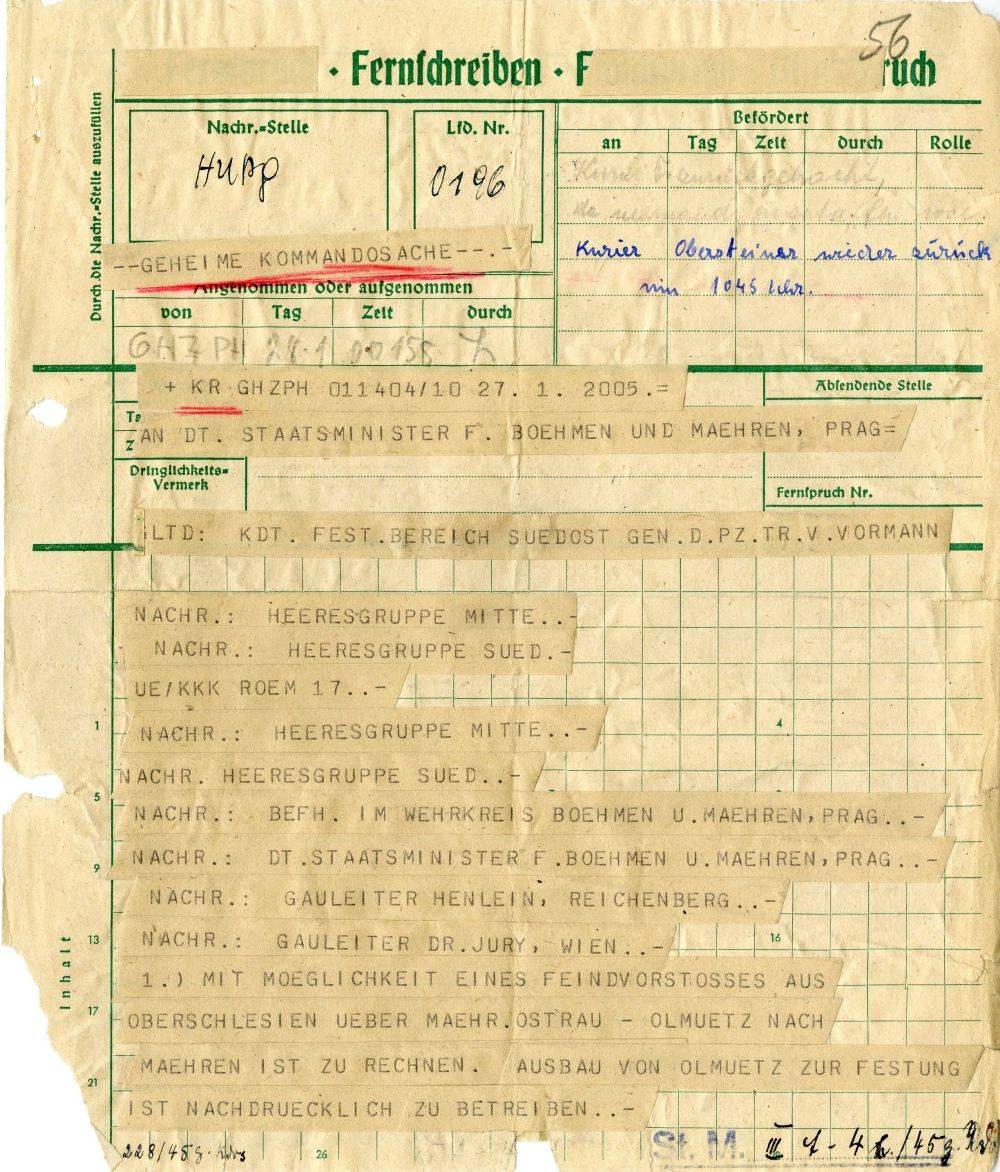 56
· Fernschreiben · F ruch
Durch die Nachr.-Stelle auszufüllen
Nachr.-Stelle
Lfd. Nr.
0196
Befördert
an Tag Zeit durch Rolle
Kurier Obersteiner wieder zurück
um 1045 Uhr.
--GEHEIME KOMMANDOSACHE--.-
Angenommen oder aufgenommen
von Tag Zeit durch
GHZPH
+ KR GHZPH 011404/10 27. 1. 2005.=
Absendende Stelle
AN DT. STAATSMINISTER F. BOEHMEN UND MAEHREN, PRAG=
Dringlichkeits-
Vermerk
Fernspruch Nr.
GLTD: KDT. FEST.BEREICH SUEDOST GEN.D.PZ.TR.V.VORMANN
NACHR.: HEERESGRUPPE MITTE..-
NACHR.: HEERESGRUPPE SUED.-
UE/KKK ROEM 17..-
1 NACHR.: HEERESGRUPPE MITTE..- 4
NACHR. HEERESGRUPPE SUED..-
5 NACHR.: BEFH. IM WEHRKREIS BOEHMEN U.MAEHREN,PRAG..-
9 NACHR.: DT.STAATSMINISTER F.BOEHMEN U.MAEHREN,PRAG..-
NACHR.: GAULEITER HENLEIN, REICHENBERG..-
13 NACHR.: GAULEITER DR.JURY, WIEN..- 16
Inhalt
1.) MIT MOEGLICHKEIT EINES FEINDVORSTOSSES AUS
17 OBERSCHLESIEN UEBER MAEHR.OSTRAU - OLMUETZ NACH
21 MAEHREN IST ZU RECHNEN. AUSBAU VON OLMUETZ ZUR FESTUNG
IST NACHDRUECKLICH ZU BETREIBEN..-
228/45 g.Kdos 26 St. M. III